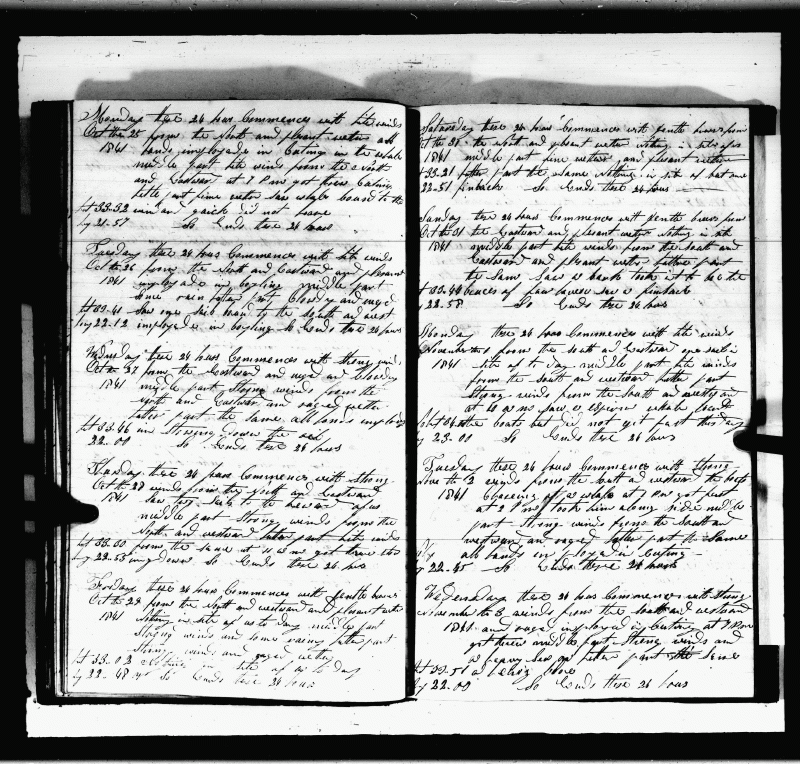 Monday these 24 hours Commences with lite winds
Oct the 25 from the South and plesant wether all
1841 hands imployde in Cuting in the whale
middle part lite wind from the South
and Eastward at 7 P m got threw Cuting
latter part fine wether saw whale bound to the
lat 33-32 winard quick did not lower
log 21-57 So Ends these 24 hours
Tuesday these 24 hours Commences with lite winds
Oct the 26 from the South and Eastward and plesant
1841 imployde in boyling middle part
some rain latter part cloudy and ruged
lat 33-41 saw one ship to the south and west
log 22-12 imployde in boyling So Ends these 24 hours
Wednsday these 24 hours Commences with strong winds
Oct the 27 from the Eastward and ruged and Cloudy
1841 middle part strong winds from the
South and Eastward and ruged wether
latter part the same all hands imployde
lat 33-46 in Stowing down the oil
22-00 So Ends these 24 hours
Thursday these 24 hours Commences with strong
Oct the 28 winds from the South and Eastward
1841 saw two sails to the leward of us
middle part Strong winds from the
South and westward latter part lite winds
lat 33-00 from the same at 11 a m got threw sto
log 22-53 ing down So Ends these 24 hours
Friday these 24 hours Commences with gentle breses
Oct the 29 from the South and westward and plesant wether
1841 nothing in site of us to day middle part
strong winds and some rainy latter part
strong winds and ruged wether
lat 33-02 nothing in site of us to day
log 22-48 So Ends these 24 hours
Saturday these 24 hours Commences with gentle breses from
Oct the 30 the South and plesant wether nothing in site of us
1841 middle part fine wether and plesant wether
lat 33-21 latter part the same nothing in site of but one
22-51 finback So Ends these 24 hours
Sunday these 24 hours Commences with gentle breses from
Oct the 31 the Eastward and plesant wether nothing in site
1841 middle part lite winds from the South and
Eastward and plesant wether latter part
the same saw a
lat 33-40 saw a finback
22-58 So Ends these 24 hours
Monday these 24 hours Commences with lite winds
November the 1 from the South and Eastward one sail in
1841 site of to day middle part lite winds
from the South and westward latter part
Strong winds from the South and westward
at 10 a m saw a whale
the boats but did not get fast this day
log 23-00 So Ends these 24 hours
Tuesday these 24 hours Commences with Strong
Nov the 2 winds from the South and westward the boats
1841 Chaceing of a whale at 1 P m got fast
at 2 P m took him along side middle
part Strong winds from the South and
westward and ruged latter part the Same
all hands imployed in Cuting
log 22-45 So Ends these 24 hours
Wednesday these 24 hours Commences with Strong
November the 3 winds from the South and westward
1841 and ruged imployed in Cuting at 7 P m
got threw middle part Strong winds and
a heavy Sea on latter part the Same
lat 33-51 a
log 22-00 So Ends these 24 hours